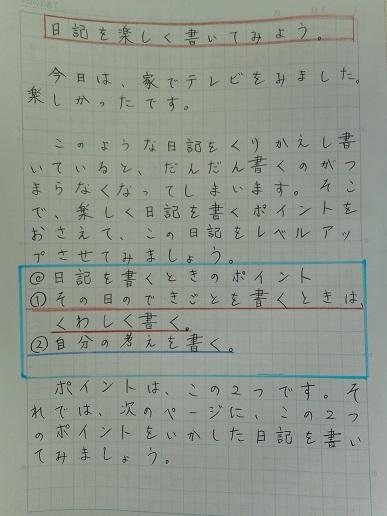 日記を楽しく書いてみよう。
今日は、家でテレビをみました。
楽しかったです。
このような日記をくりかえし書
いていると、だんだん書くのがつ
まらなくなってしまいます。そこ
で、楽しく日記を書くポイントを
おさえて、この日記をレベルアッ
プさせてみましょう。
◎日記を書くときのポイント
①その日のできごとを書くときは、
くわしく書く。
②自分の考えを書く。
ポイントは、この2つです。そ
れでは、次のページに、この2つ
のポイントをいかした日記を書い
てみましょう。